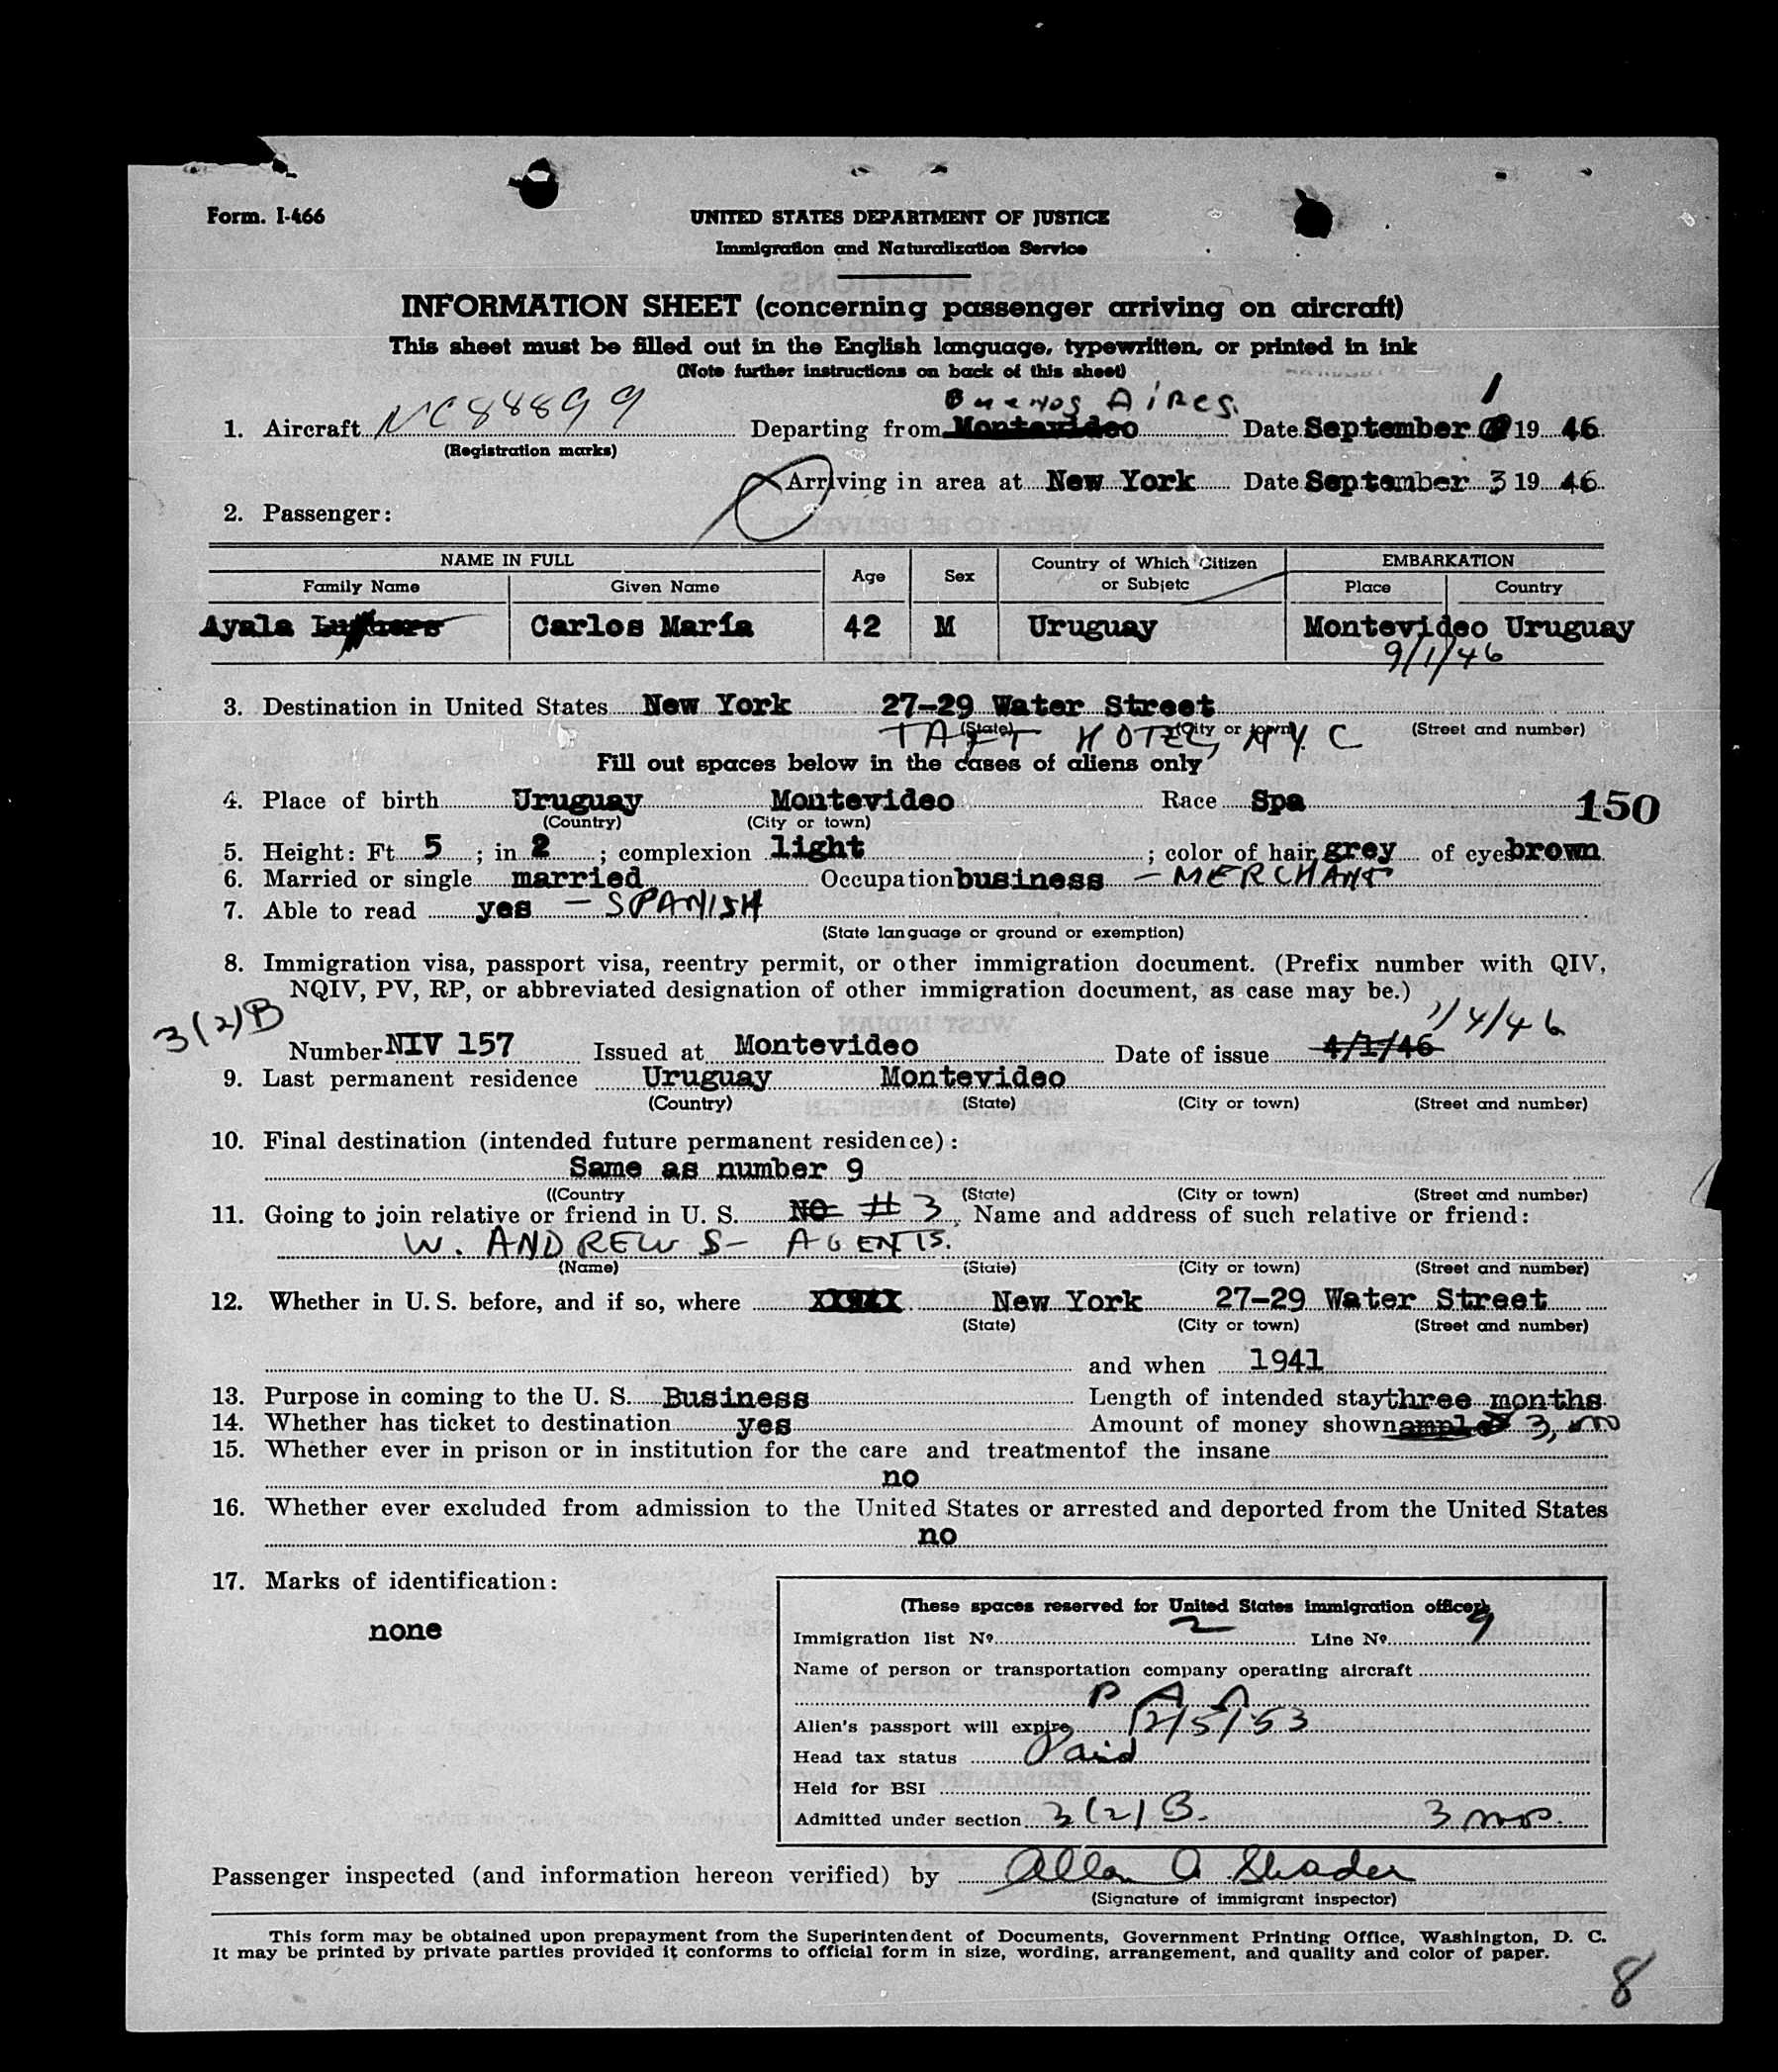 Form. I-466
UNITED STATES DEPARTMENT OF JUSTICE
Immigration and Naturalization Service
INFORMATION SHEET (concerning passenger arriving on aircraft)
This sheet must be filled out in the English language, typewritten, or printed in ink
(Note further instructions on back of this sheet)
Buenos Aires. 1
1. Aircraft NC88899 Departing from Montevideo Date September 19 46
(Registration marks)
Arriving in area at New York Date September 3 19 46
2. Passenger:
NAME IN FULL Age Sex Country of Which Citizen or Subjetc EMBARKATION
Family Name Given Name Place Country
Ayala Carlos María 42 M Uruguay Montevideo Uruguay
9/1/46
3. Destination in United States New York 27-29 Water Street
(State) (City or town) (Street and number)
TAFT HOTEL, N.Y.C
Fill out spaces below in the cases of aliens only
4. Place of birth Uruguay Montevideo Race Spa 150
(Country) (City or town)
5. Height: Ft 5 ; in 2 ; complexion light ; color of hair grey of eyes brown
6. Married or single married Occupation business - MERCHANT
7. Able to read yes - SPANISH
(State language or ground or exemption)
8. Immigration visa, passport visa, reentry permit, or other immigration document. (Prefix number with QIV,
NQIV, PV, RP, or abbreviated designation of other immigration document, as case may be.)
3(2)B 1/4/46
Number NIV 157 Issued at Montevideo Date of issue 4/1/46
9. Last permanent residence Uruguay Montevideo
(Country) (State) (City or town) (Street and number)
10. Final destination (intended future permanent residence):
Same as number 9
((Country (State) (City or town) (Street and number)
11. Going to join relative or friend in U. S. NO # 3, Name and address of such relative or friend:
W. ANDREWS- AGENTS.
(Name) (State) (City or town) (Street and number)
12. Whether in U. S. before, and if so, where New York 27-29 Water Street
(State) (City or town) (Street and number)
and when 1941
13. Purpose in coming to the U. S. Business Length of intended stay three months
14. Whether has ticket to destination yes Amount of money shown ample
15. Whether ever in prison or in institution for the care and treatmentof the insane
no
16. Whether ever excluded from admission to the United States or arrested and deported from the United States
no
17. Marks of identification:
none
(These spaces reserved for United States immigration officer)
Immigration list Nº 2 Line Nº 9
Name of person or transportation company operating aircraft
P A A
Alien's passport will expire 12/5/53
Head tax status Paid
Held for BSI
Admitted under section 3(2)B. 3 mos.
Passenger inspected (and information hereon verified) by Allan A Shader
(Signature of immigrant inspector)
This form may be obtained upon prepayment from the Superintendent of Documents, Government Printing Office, Washington, D. C.
It may be printed by private parties provided it conforms to official form in size, wording, arrangement, and quality and color of paper.
8